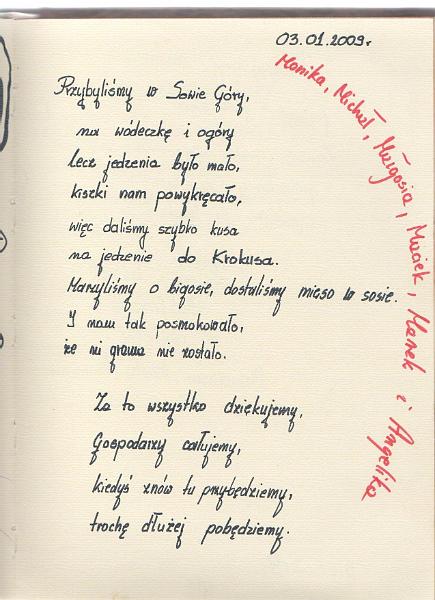 03.01.2009r
Przybyliśmy w Sowie Góry,
na wódeczkę i ogóry
lecz jedzenia było mało,
kiszki nam powykręcało,
więc daliśmy szybko kusa
na jedzenie do Krokusa.
Marzyliśmy o bigosie, dostaliśmy mięso w sosie.
I nam tak posmakowało,
że ni grama nie zostało.
Za to wszystko dziękujemy,
Gospodarzy całujemy,
kiedyś znów tu przybędziemy,
trochę dłużej pobędziemy.
Monika, Michał, Małgosia, Maciek, Marek i Angelika